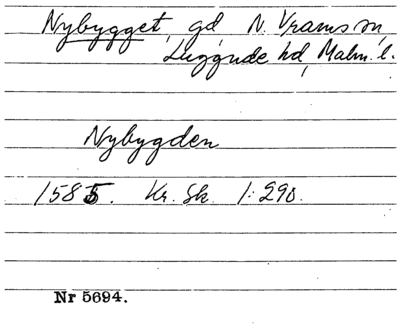 Nybygget, gd, N. Vrams sn,
Luggude hd, Malm. l.
Nybygden
1585. Kr. Sk. 1:290.
Nr 5694.